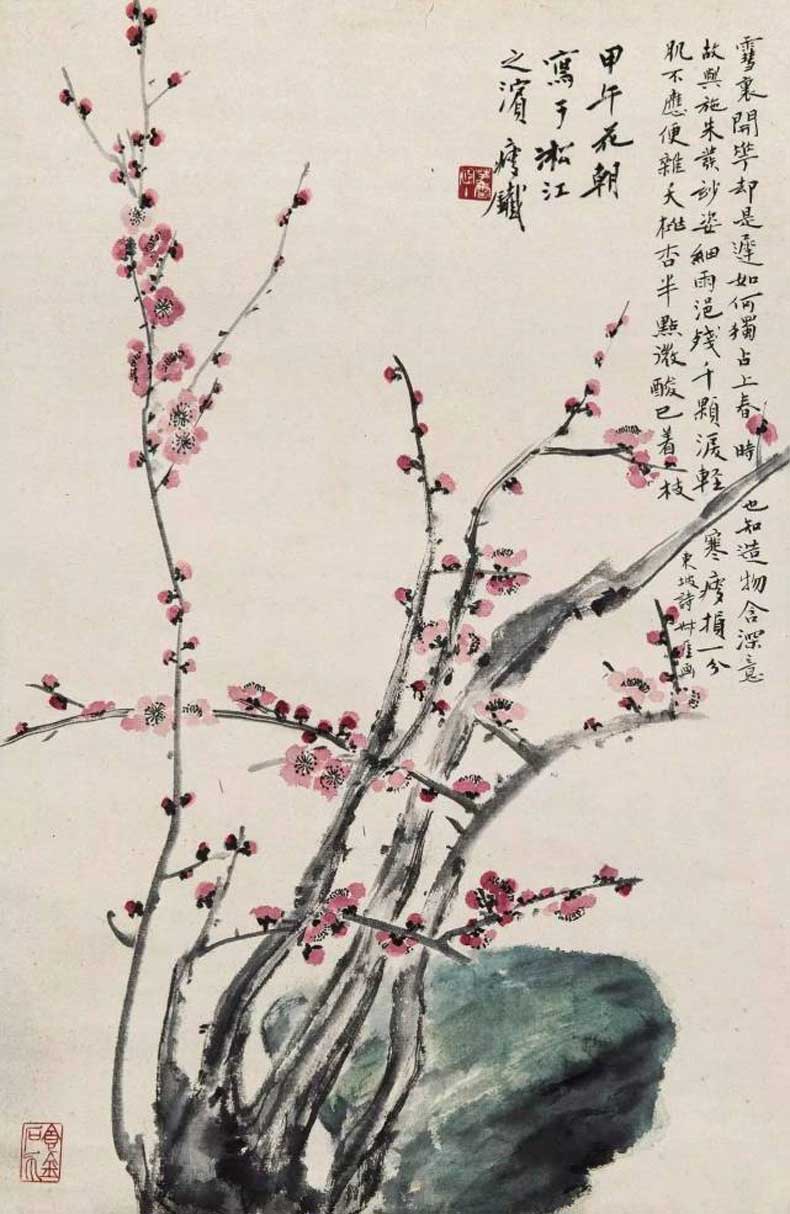 雪裏開華却是遲如何獨占上春時也知造物含深意
故與施朱發玅姿細雨浥殘千顆淚輕寒瘦損一分
肌不應便雜夭桃杏半點微酸已着枝
東坡詩
甲午花朝
寫于淞江
之濱 瘦鐵